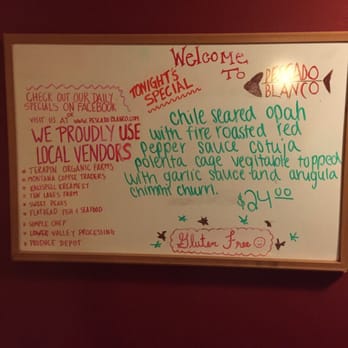 Welcome
To
PESCADO
BLANCO
TONIGHT'S
SPECIAL
Chile seared opah
with fire roasted red
pepper sauce cotija
polenta cage vegitable topped
with garlic sauce and arugula
chimmi churri.
$24.00
Gluten Free
CHECK OUT OUR DAILY
SPECIALS ON FACEBOOK
OR
VISIT US AT WWW.PESCADOBLANCO.COM
WE PROUDLY USE
LOCAL VENDORS
TERAPIN ORGANIC FARMS
MONTANA COFFEE TRADERS
KALISPELL KREAMERY
TEN LAKES FARM
SWEET PEAKS
FLATHEAD FISH & SEAFOOD
SIMPLE CHEF
LOWER VALLEY PROCESSING
PRODUCE DEPOT